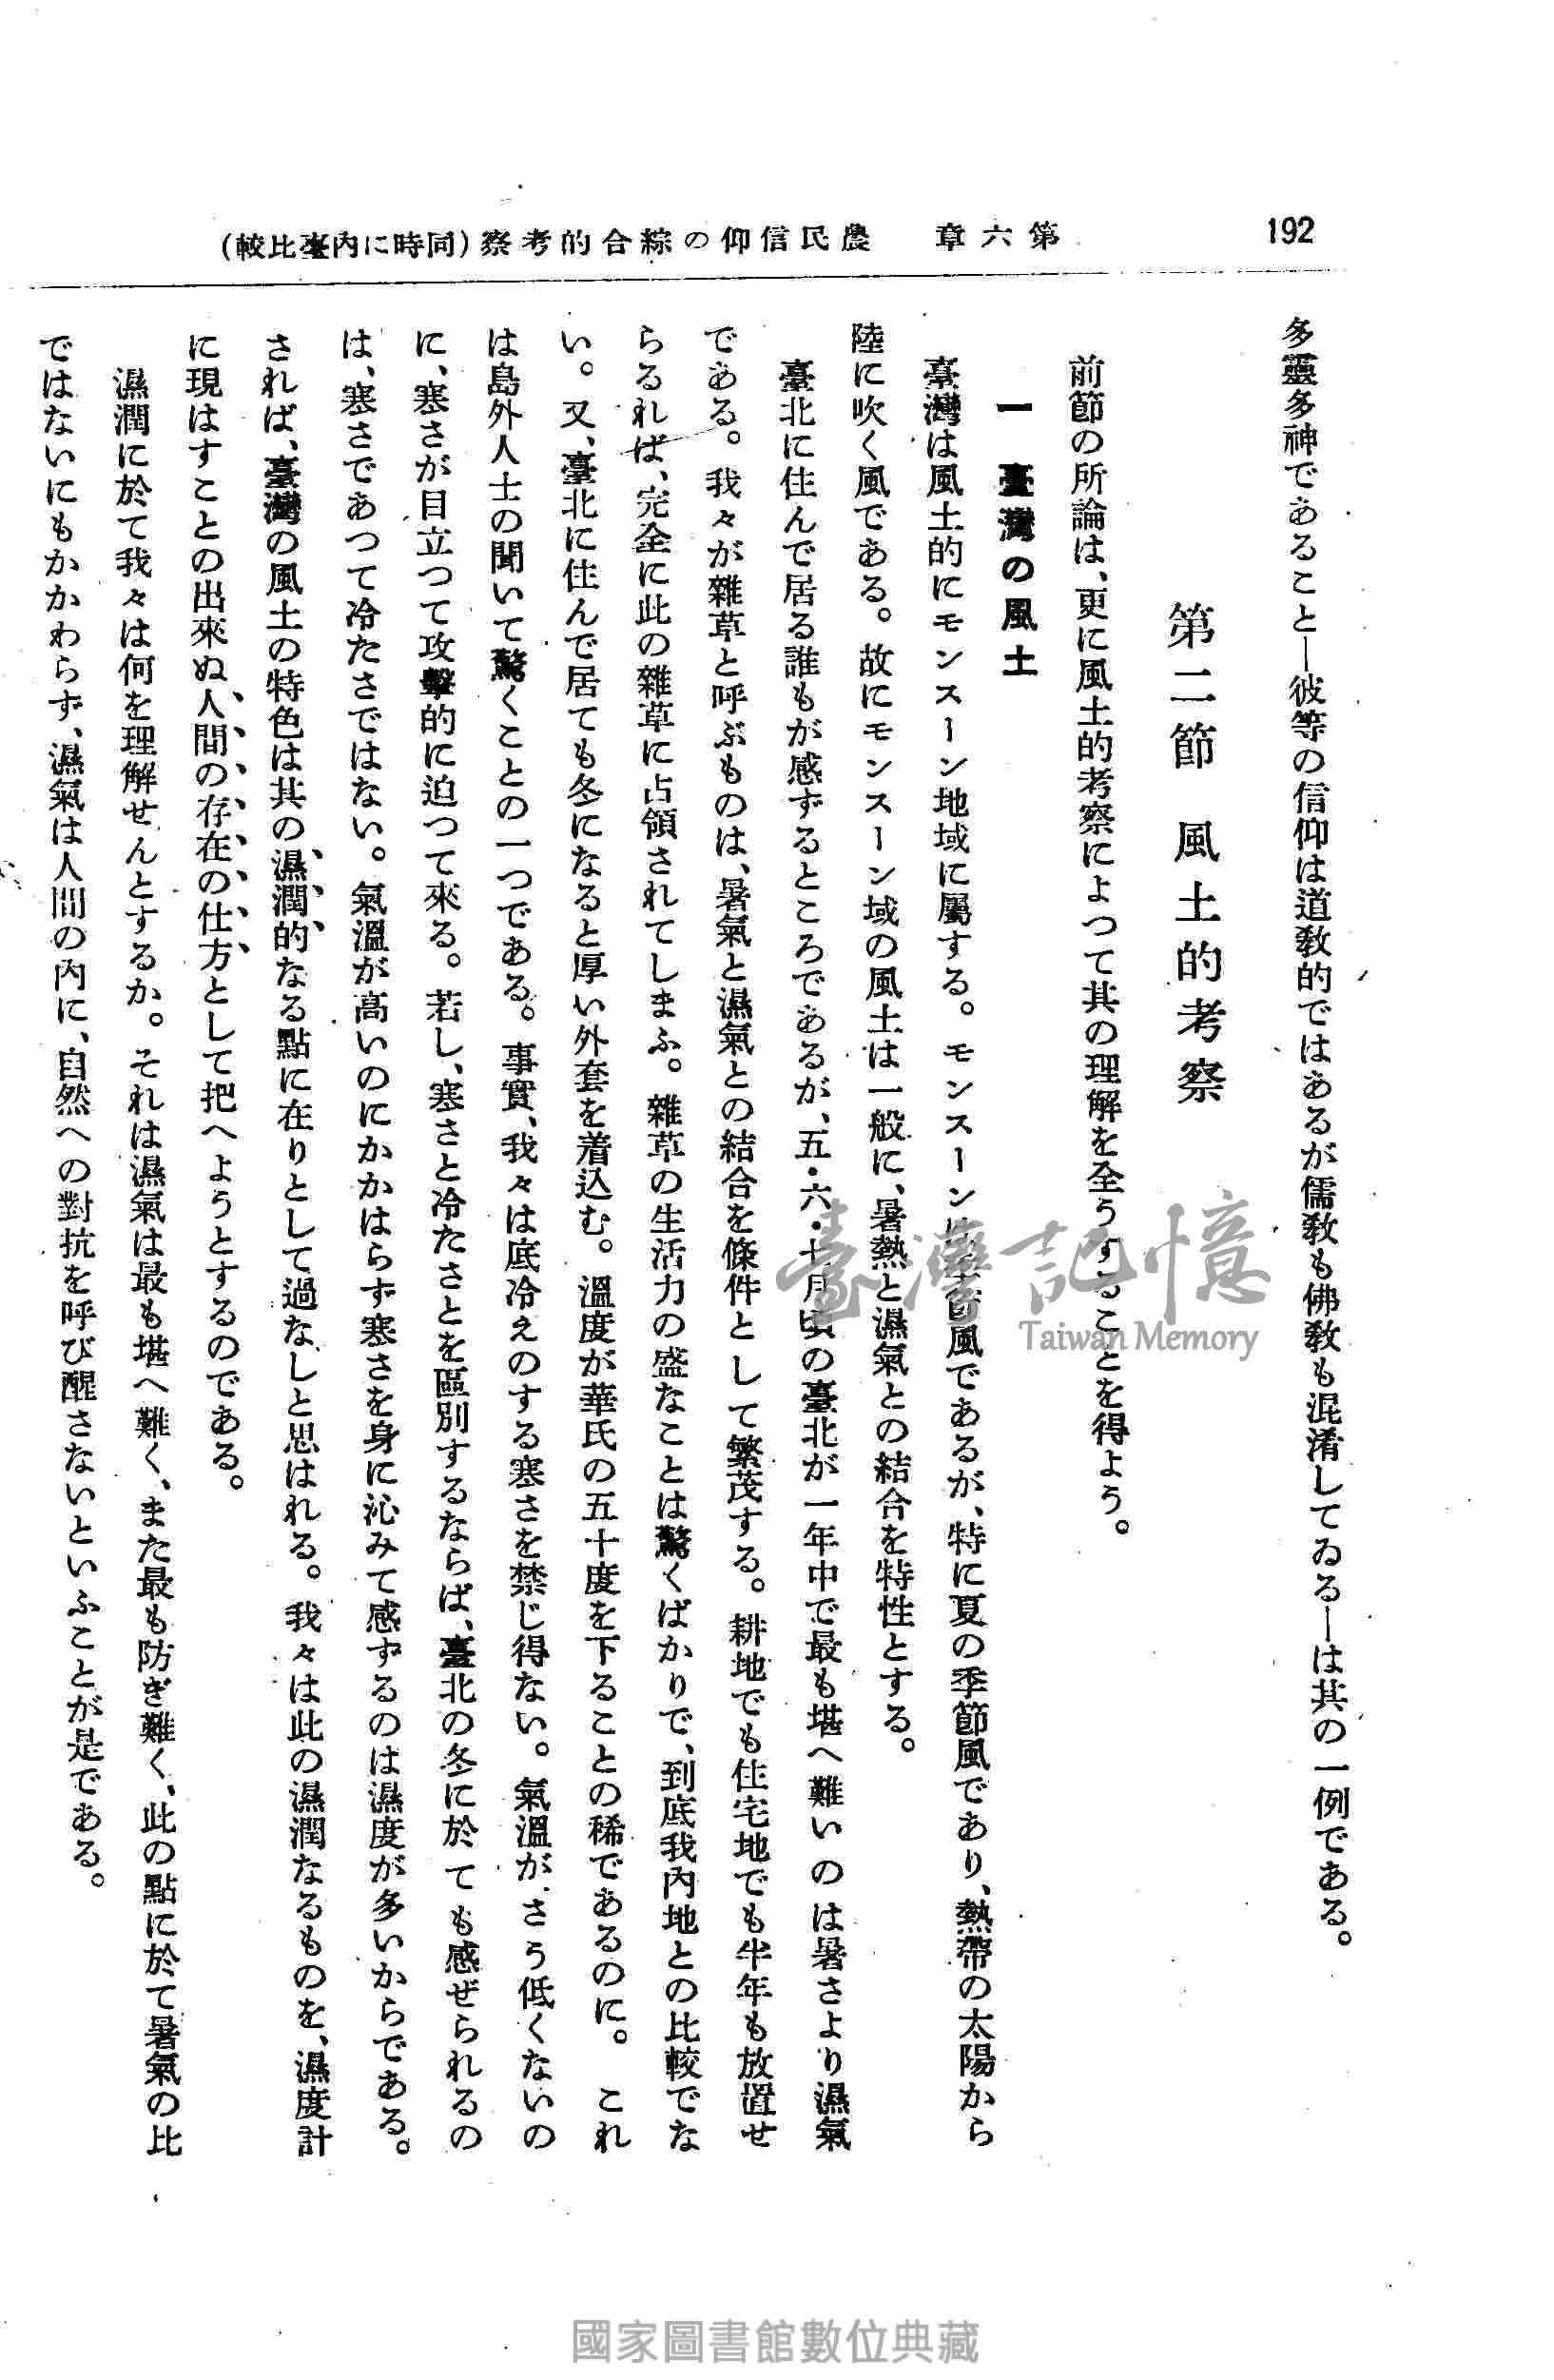 192
第六章　農民信仰の綜合的考察(同時に内臺比較)
多靈多神であること―彼等の信仰は道教的ではあるが儒教も佛教も混淆してゐる―は其の一例である。
第二節　風土的考察
前節の所論は、更に風土的考察によつて其の理解を全うすることを得よう。
一　臺灣の風土
臺灣は風土的にモンスーン地域に屬する。モンスーンは季節風であるが、特に夏の季節風であり、熱帶の太陽から
陸に吹く風である。故にモンスーン域の風土は一般に、暑熱と濕氣との結合を特性とする。
臺北に住んで居る誰もが感ずるところであるが、五・六・七月頃の臺北が一年中で最も堪へ難いのは暑さより濕氣
である。我々が雜草と呼ぶものは、暑氣と濕氣との結合を條件として繁茂する。耕地でも住宅地でも半年も放置せ
らるれば、完全に此の雜草に占領されてしまふ。雜草の生活力の盛なことは驚くばかりで、到底我内地との比較でな
い。又、臺北に住んで居ても冬になると厚い外套を着込む。溫度が華氏の五十度を下ることの稀であるのに。これ
は島外人士の聞いて驚くことの一つである。事實、我々は底冷えのする寒さを禁じ得ない。氣溫がさう低くないの
に、寒さが目立つて攻擊的に迫つて來る。若し、寒さと冷たさとを區別するならば、臺北の冬に於ても感ぜられるの
は、寒さであつて冷たさではない。氣溫が高いのにかかはらず寒さを身に沁みて感ずるのは濕度が多いからである。
されば、臺灣の風土の特色は其の濕潤的なる點に在りとして過なしと思はれる。我々は此の濕潤なるものを、濕度計
に現はすことの出來ぬ人間の存在の仕方として把へようとするのである。
濕潤に於て我々は何を理解せんとするか。それは濕氣は最も堪へ難く、また最も防ぎ難く、此の點に於て暑氣の比
ではないにもかかわらず、濕氣は人間の内に、自然への對抗を呼び醒さないといふことが是である。
臺灣記憶
Taiwan Memory
國家圖書館數位典藏